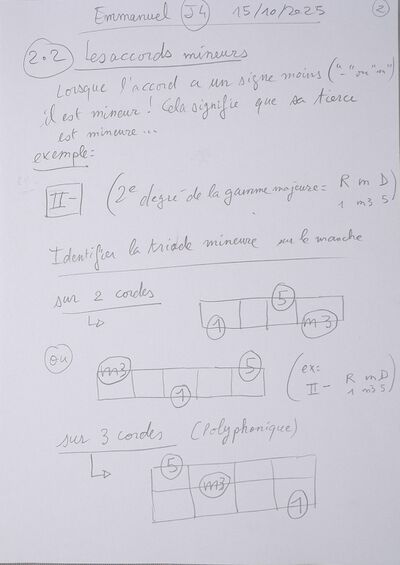 Emmanuel J4 15/10/2025 2
2.2 Les accords mineurs
Lorsque l'accord a un signe moins ("-" ou "m")
il est mineur ! Cela signifie que sa tierce
est mineure ...
exemple :
II- (2e degré de la gamme majeure = R m D
1 m3 5)
Identifier la triade mineure sur le manche
sur 2 cordes
5
1 m3
ou
m3 5
1
(ex: R m D
II- 1 m3 5)
sur 3 cordes (Polyphonique)
5
m3
1